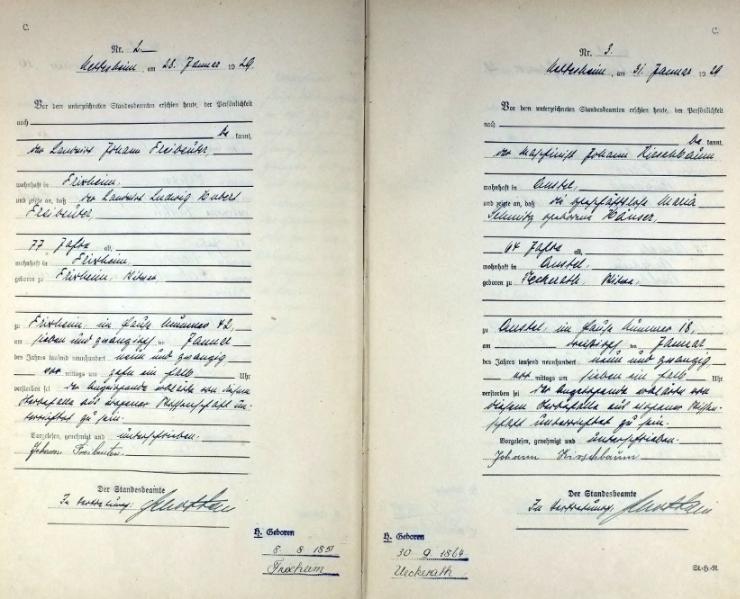 C.
Nr. 2
Nettesheim, am 28. Januar 1929.
Vor dem unterzeichneten Standesbeamten erschien heute, der Persönlichkeit
nach
be kannt,
der Landwirt Johann Freibeuter,
wohnhaft in Frixheim,
und zeigte an, daß der Landwirt Ludwig Hubert
Freibeuter,
77 Jahre alt,
wohnhaft in Frixheim,
geboren zu Frixheim, Witwer,
zu Frixheim, im Hause Nummer 42,
am sieben und zwanzigsten Januar
des Jahres tausend neunhundert neun und zwanzig
vor mittags um zehn ein halb Uhr
verstorben sei. Der Anzeigende erklärte von diesem
Sterbefalle aus eigener Wissenschaft un-
terrichtet zu sein.
Vorgelesen, genehmigt und unterschrieben.
Johann Freibeuter.
Der Standesbeamte
In Vertretung:
H. Geboren
8 8 1851
Frixheim
C.
Nr. 3.
Nettesheim, am 31. Januar 1929
Vor dem unterzeichneten Standesbeamten erschien heute, der Persönlichkeit
nach
be kannt,
der Maschinist Johann Kirschbaum
wohnhaft in Anstel,
und zeigte an, daß die geschäftslose Maria
Schmitz geborene Häuser,
64 Jahre alt,
wohnhaft in Anstel,
geboren zu Ueckerath, Witwe,
zu Anstel, im Hause Nummer 18,
am dreißigsten Januar
des Jahres tausend neunhundert neun und zwanzig
vor mittags um sieben ein halb Uhr
verstorben sei. Der Anzeigende erklärte von
diesem Sterbefalle aus eigener Wissen-
schaft unterrichtet zu sein.
Vorgelesen, genehmigt und unterschrieben.
Johann Kirschbaum
Der Standesbeamte
In Vertretung:
H. Geboren
30 9 1864
Ueckerath
St.-H.-R.